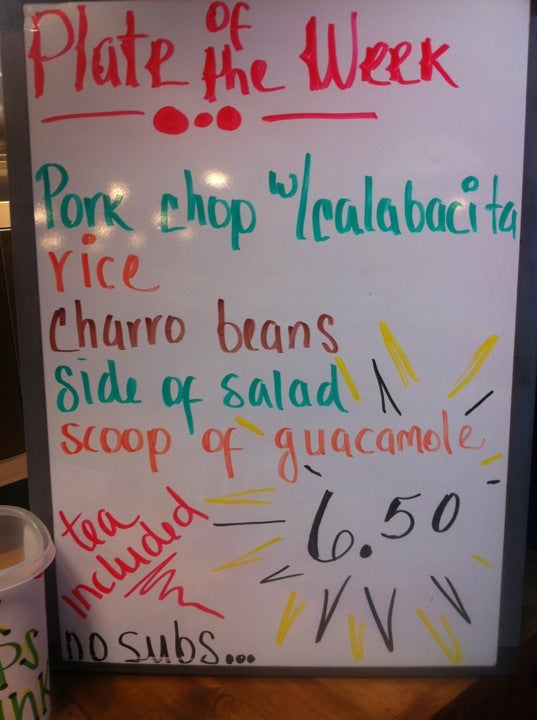 Plate of the Week
Pork chop w/calabacita
rice
Charro beans
side of salad
scoop of guacamole
tea included
6.50
no subs...